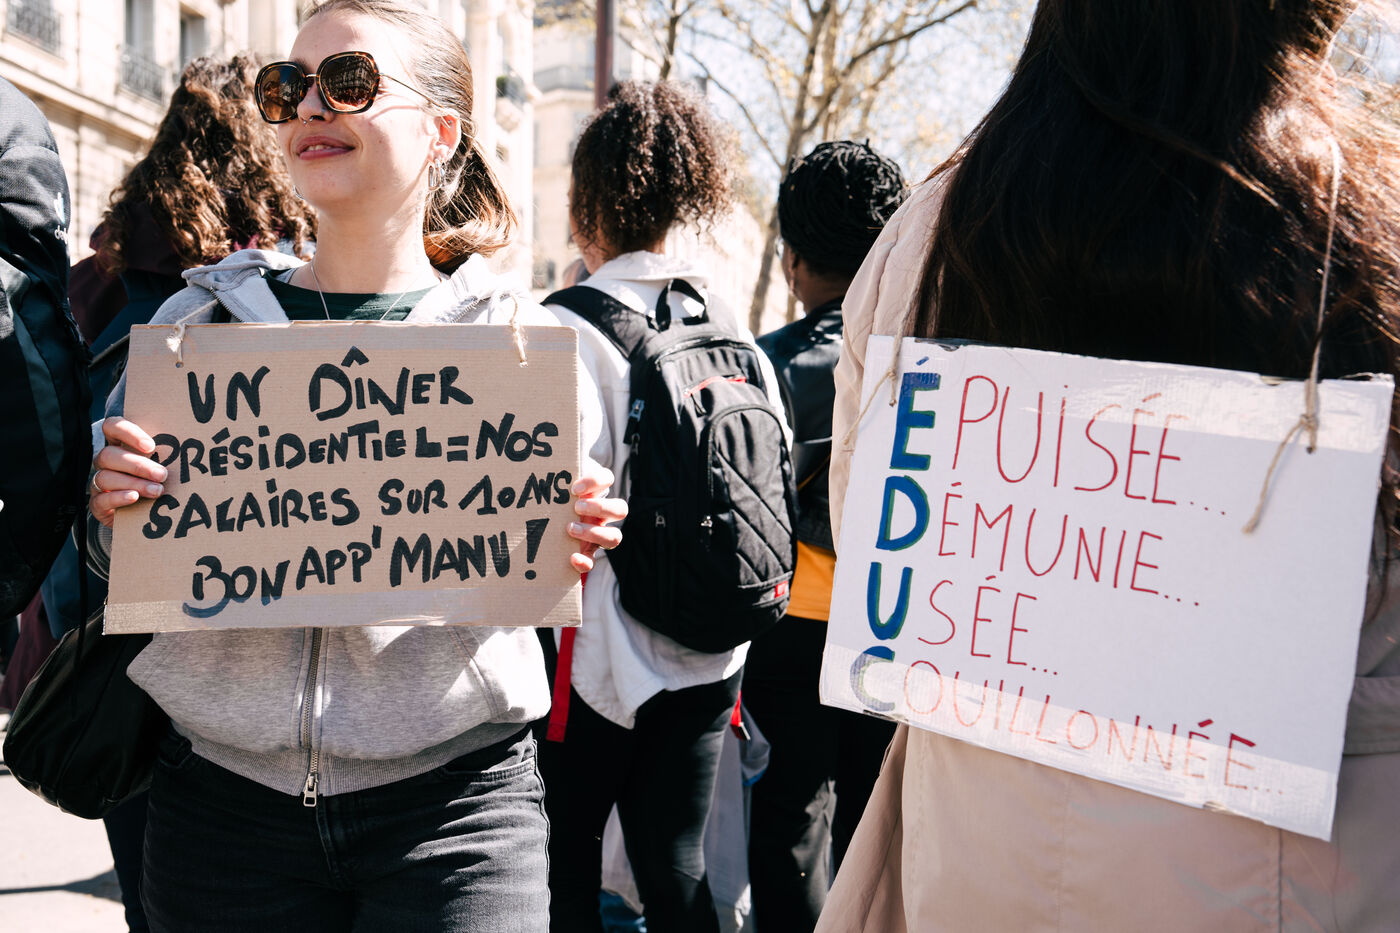 UN DÎNER
PRÉSIDENTIEL=NOS
SALAIRES SUR 10 ANS
BON APP' MANU!
ÉPUISÉE...
DÉMUNIE...
USÉE...
COUILLONNÉE...